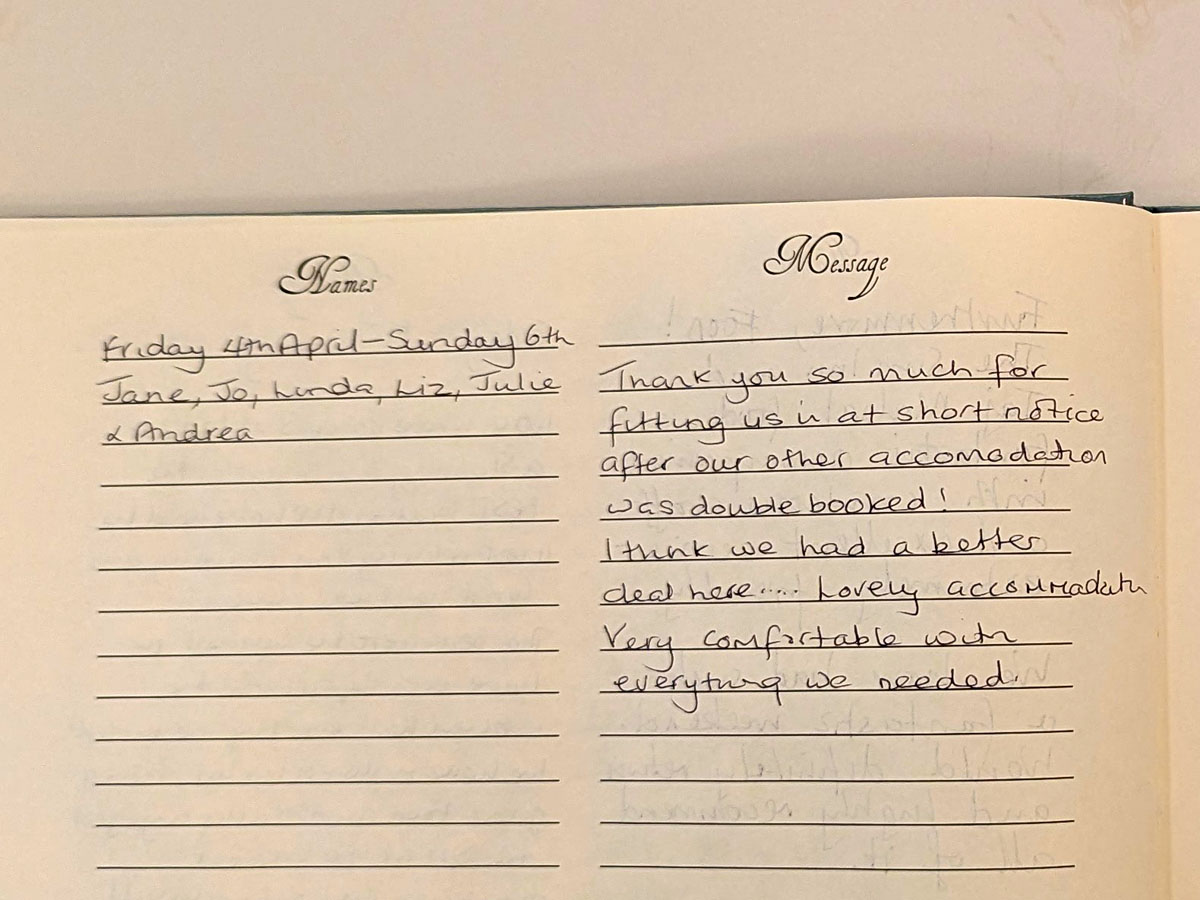 Names
Friday 4th April - Sunday 6th
Jane, Jo, Linda, Liz, Julie
& Andrea
Message
Thank you so much for
fitting us in at short notice
after our other accomodation
was double booked!
I think we had a better
deal here.... Lovely accommadatn
Very comfortable with
everything we needed.